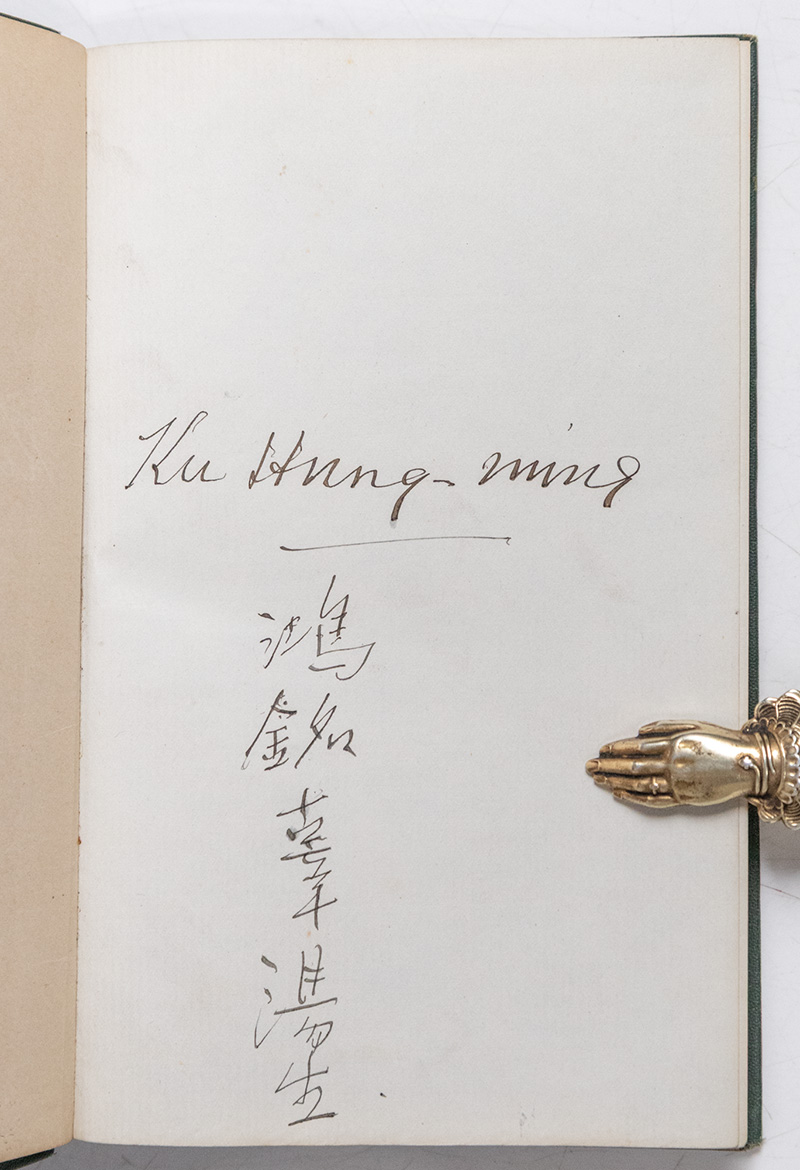 Ku Hung-ming
鴻銘辜湯生